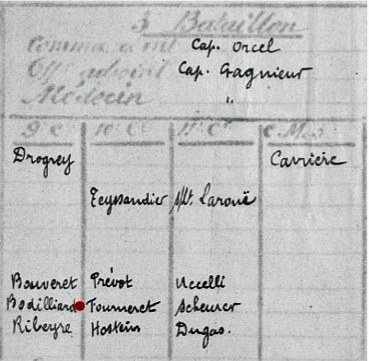 3 Bataillon
Commandant Cap. Orcel
Off adjoint Cap. Gagnieur
Médecin "
9 Cie 10 Cie 11 Cie C M 3
Drogrey Carrière
Teyssandier Slt. Larouë
Bouveret Prévot Uccelli
Bodilliard Fourneret Scheurer
Ribeyre Hostein Dugas.